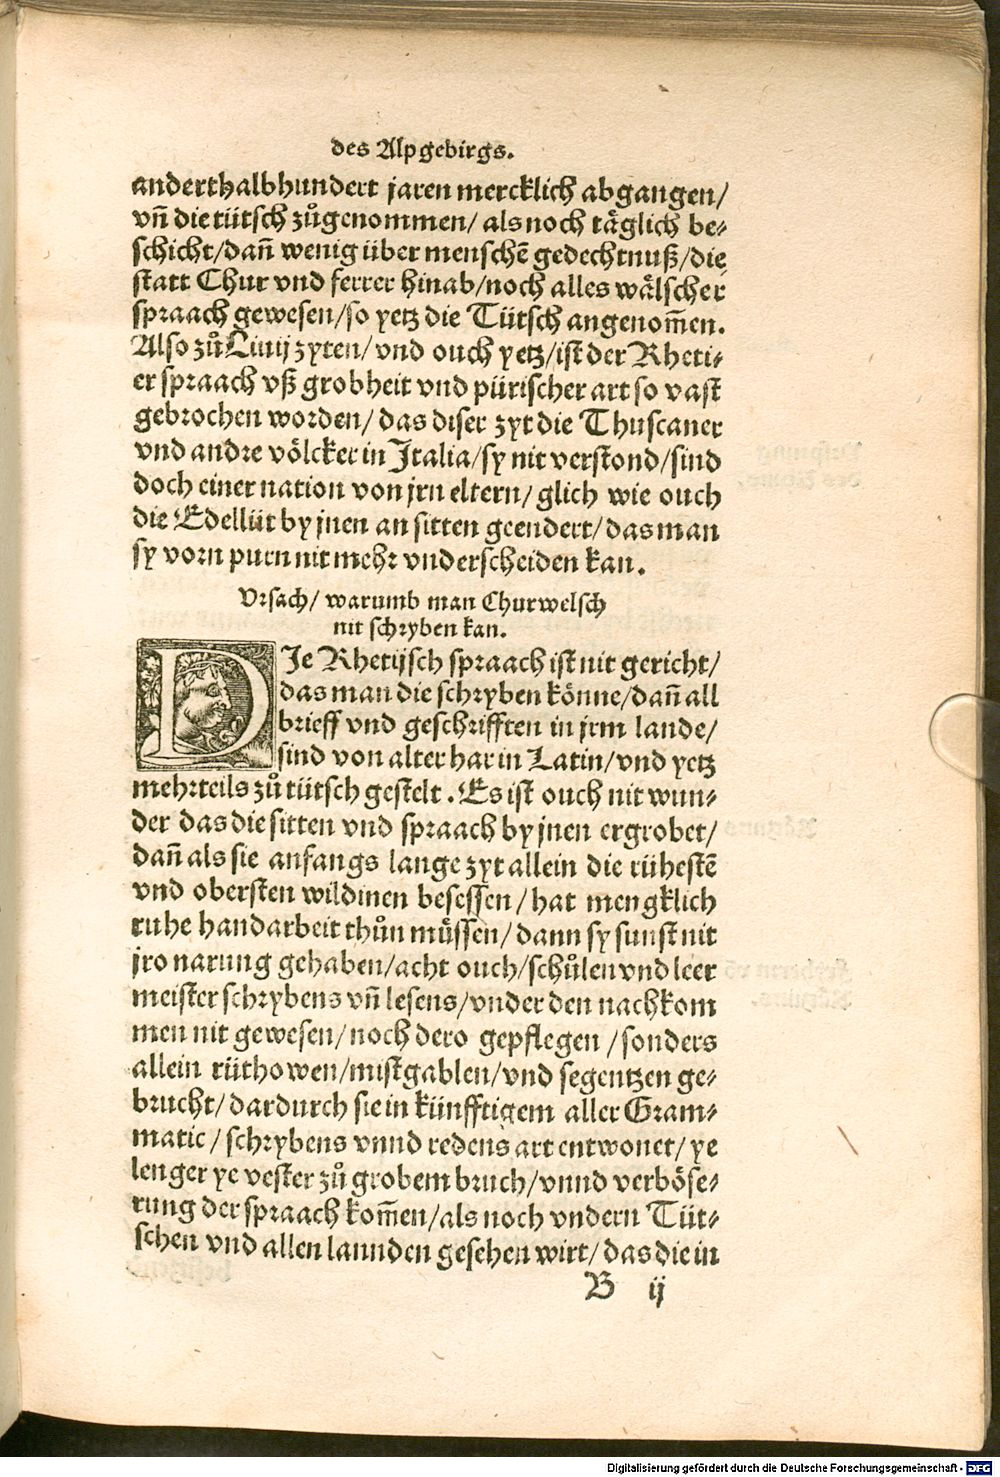 des Alpgebirgs.
anderthalbhundert jaren mercklich abgangen/
vñ die tütsch zůgenommen/ als noch täglich be⸗
schicht/dañ wenig über menschē gedechtnuß/die
statt Chur vnd ferrer hinab/noch alles wälscher
spraach gewesen/so yetz die Tütsch angenom̃en.
Also zů Liuij zyten/ vnd ouch yetz/ist der Rheti⸗
er spraach vß grobheit vnd pürischer art so vast
gebrochen worden/ das diser zyt die Thuscaner
vnd andre völcker in Italia/sy nit verstond/sind
doch einer nation von jrn eltern/ glich wie ouch
die Edellüt by jnen an sitten geendert/das man
sy vorn purn nit mehr vnderscheiden kan.
Vrsach/ warumb man Churwelsch
nit schryben kan.
DIe Rhetijsch spraach ist nit gericht/
das man die schryben könne/dañ all
brieff vnd geschrifften in jrm lande/
sind von alter har in Latin/vnd yetz
mehrteils zů tütsch gestelt. Es ist ouch nit wun⸗
der das die sitten vnd spraach by jnen ergrobet/
dañ als sie anfangs lange zyt allein die rühestē
vnd obersten wildinen besessen/hat mengklich
ruhe handarbeit thůn müssen/dann sy sunst nit
jro narung gehaben/acht ouch/schůlen vnd leer
meister schrybens vñ lesens/vnder den nachkom
men nit gewesen/noch dero gepflegen/sonders
allein rüthowen/mistgablen/vnd segentzen ge⸗
brucht/dardurch sie in künfftigem aller Gram⸗
matic/schrybens vnnd redens art entwonet/ye
lenger ye vester zů grobem bruch/vnnd verböse⸗
rung der spraach kom̃en/als noch vndern Tüt⸗
schen vnd allen lannden gesehen wirt/das die in
B ij
Digitalisierung gefördert durch die Deutsche Forschungsgemeinschaft - DFG